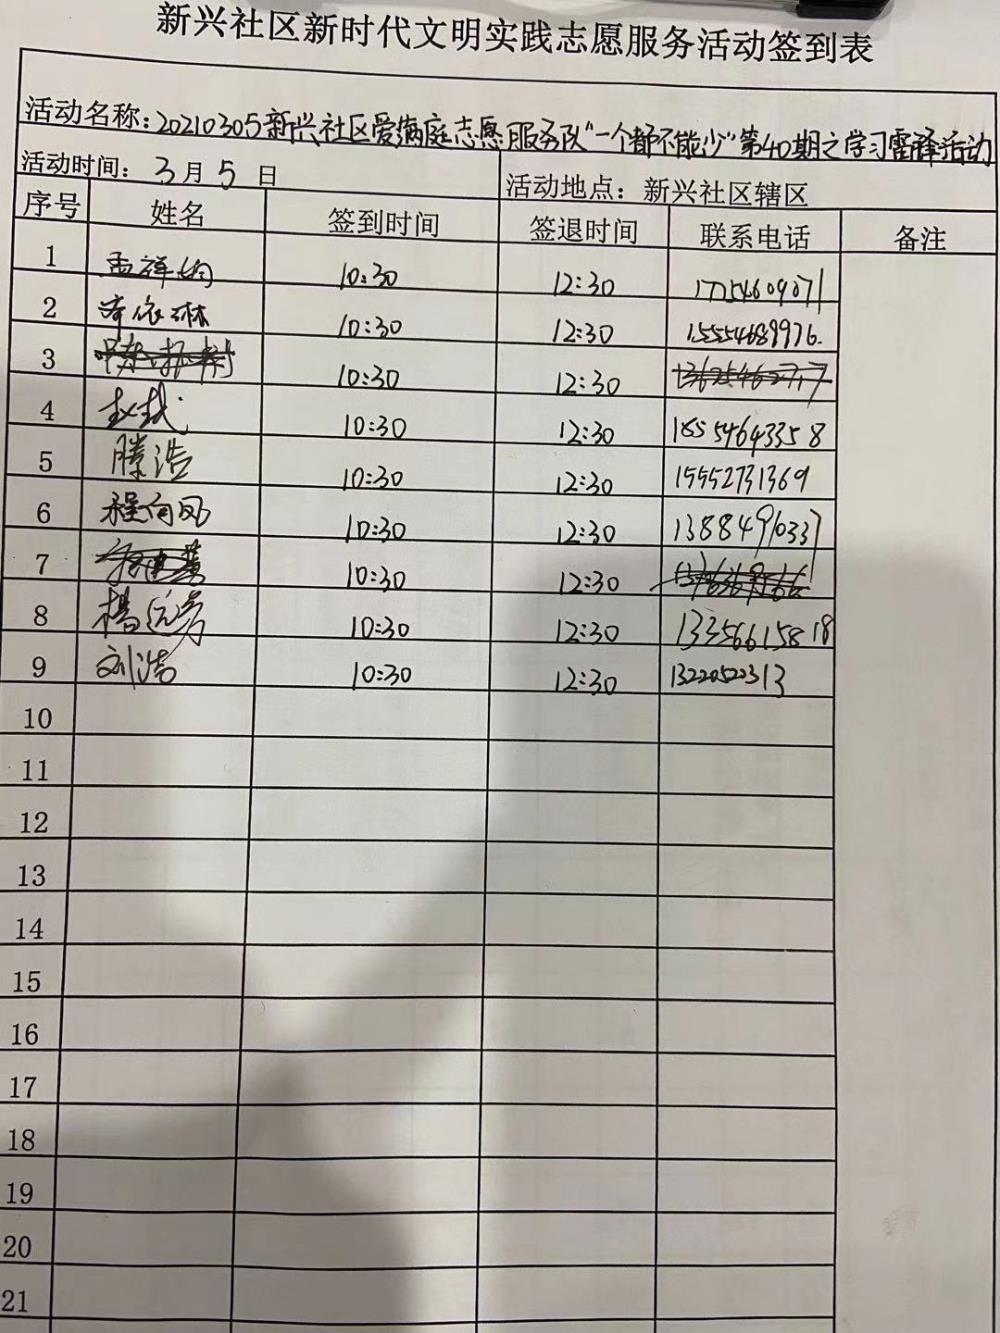 新兴社区新时代文明实践志愿服务活动签到表
活动名称：20210305新兴社区爱满庭志愿服务队“一个都不能少”第40期之学习雷锋活动
活动时间：3月5日 活动地点：新兴社区辖区
序号 姓名 签到时间 签退时间 联系电话 备注
1 10:30 12:30 17754609071
2 10:30 12:30 15554689976.
3 10:30 12:30
4 赵斌 10:30 12:30 18554643358
5 滕浩 10:30 12:30 15552731369
6 程向风 10:30 12:30 13884910337
7 10:30 12:30
8 杨远芳 10:30 12:30
9 刘浩 10:30 12:30 13220522313
10
11
12
13
14
15
16
17
18
19
20
21